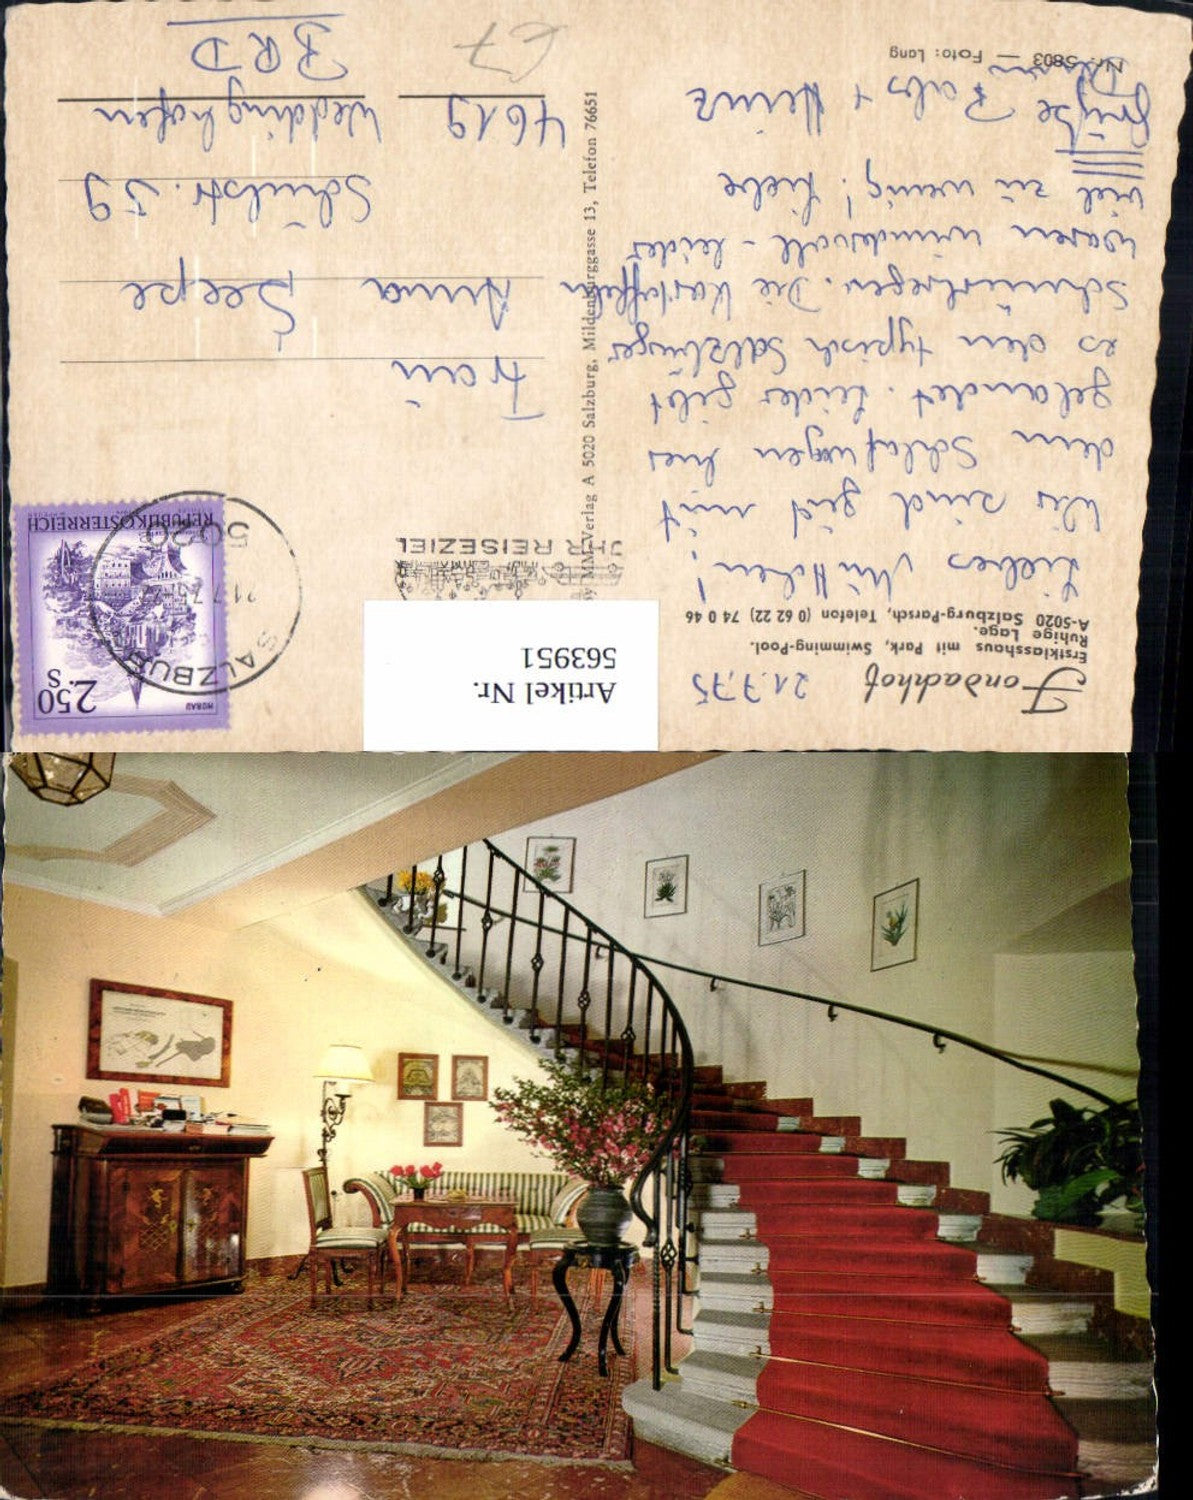 Fondachhof
Erstklasshaus mit Park, Swimming-Pool.
Ruhige Lage.
A-5020 Salzburg-Parsch, Telefon (0 62 22) 74 0 46
21.7.75
Liebes
Wir sind gut mit
dem Schlafwagen hier
gelandet. Leider gibt
es den typisch Salzburger
Schnürlregen. Die Kartoffeln
waren wundervoll - leider
viel zu wenig! Liebe
Grüße
+ Heinz
Nr. 5803 — Foto: Lang
MM-Verlag A 5020 Salzburg, Mildenburggasse 13, Telefon 76651
Artikel Nr.
563951
IHR REISEZIEL
MORAU
2.50
S
REPUBLIK ÖSTERREICH
SALZBURG
5020
Frau
Anna Seepe
Schulstr. 59
4619 Weddinghofen
BRD